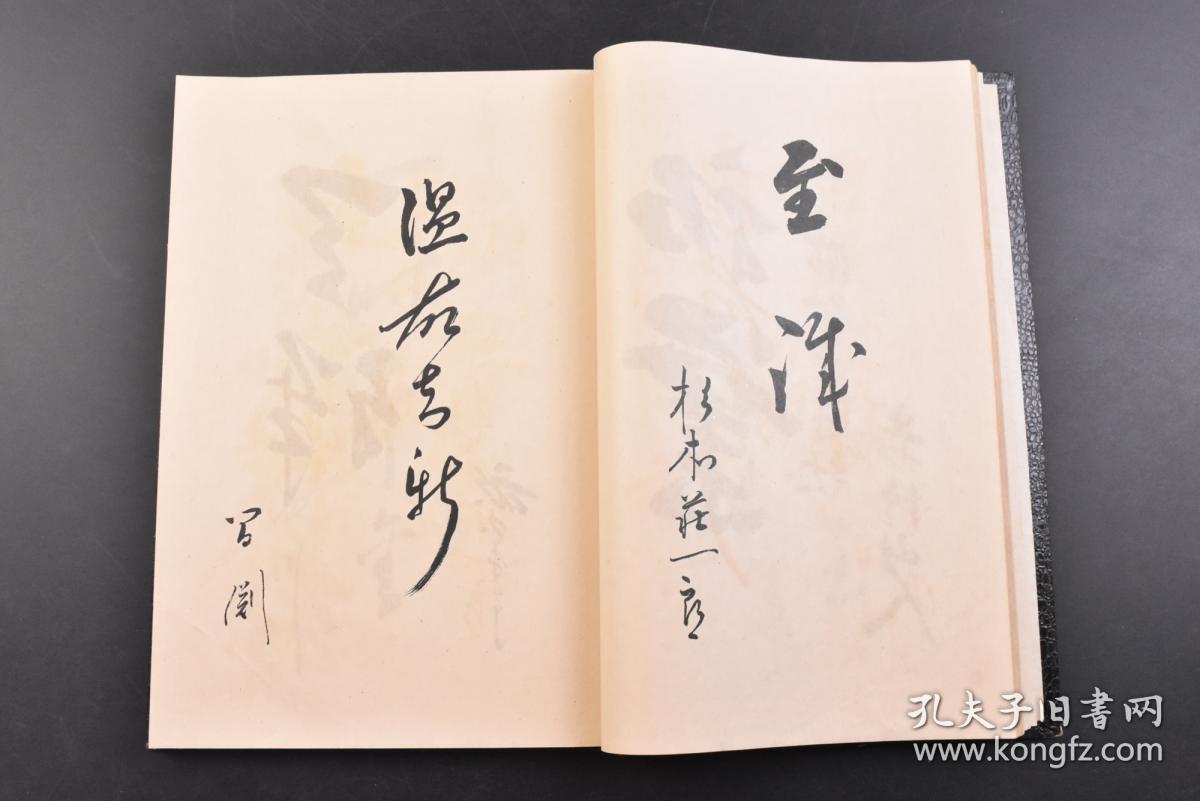 至誠
杉本莊一郎
温故知新
孔夫子旧書网
www.kongfz.com